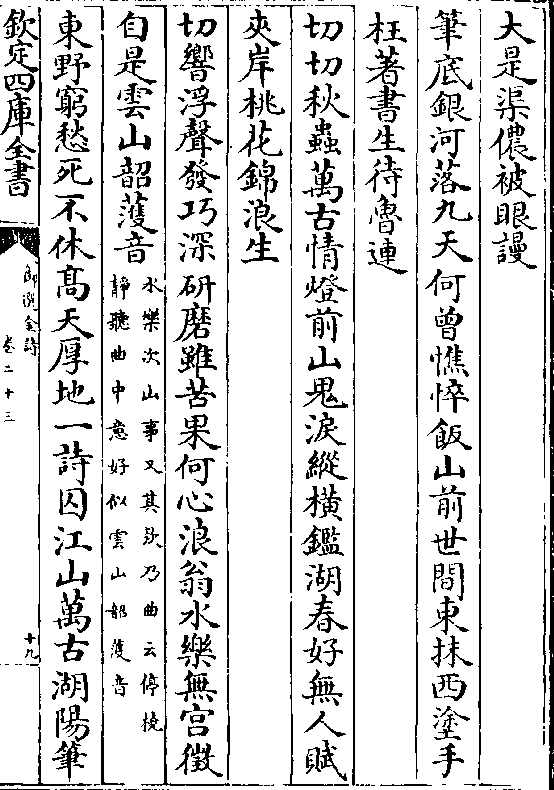 大是渠儂被眼謾
筆底銀河落九天何曾憔悴飯山前世間東抹西塗手
枉著書生待魯連
切切秋蟲萬古情燈前山鬼淚縱橫鑑湖春好無人賦
夾岸桃花錦浪生
切響浮聲發巧深研磨雖苦果何心浪翁水樂無宮徴
自是雲山韶頀音
水樂次山事又其欵乃曲云停橈
靜聽曲中意好似雲山韶頀音
東野窮愁死不休髙天厚地一詩囚江山萬古湖陽筆
欽定四庫全書
御選金詩
卷二十三
十九